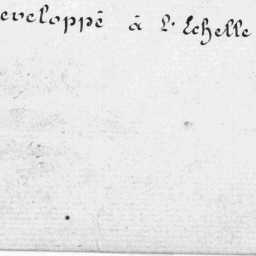 eveloppé à l'Echelle